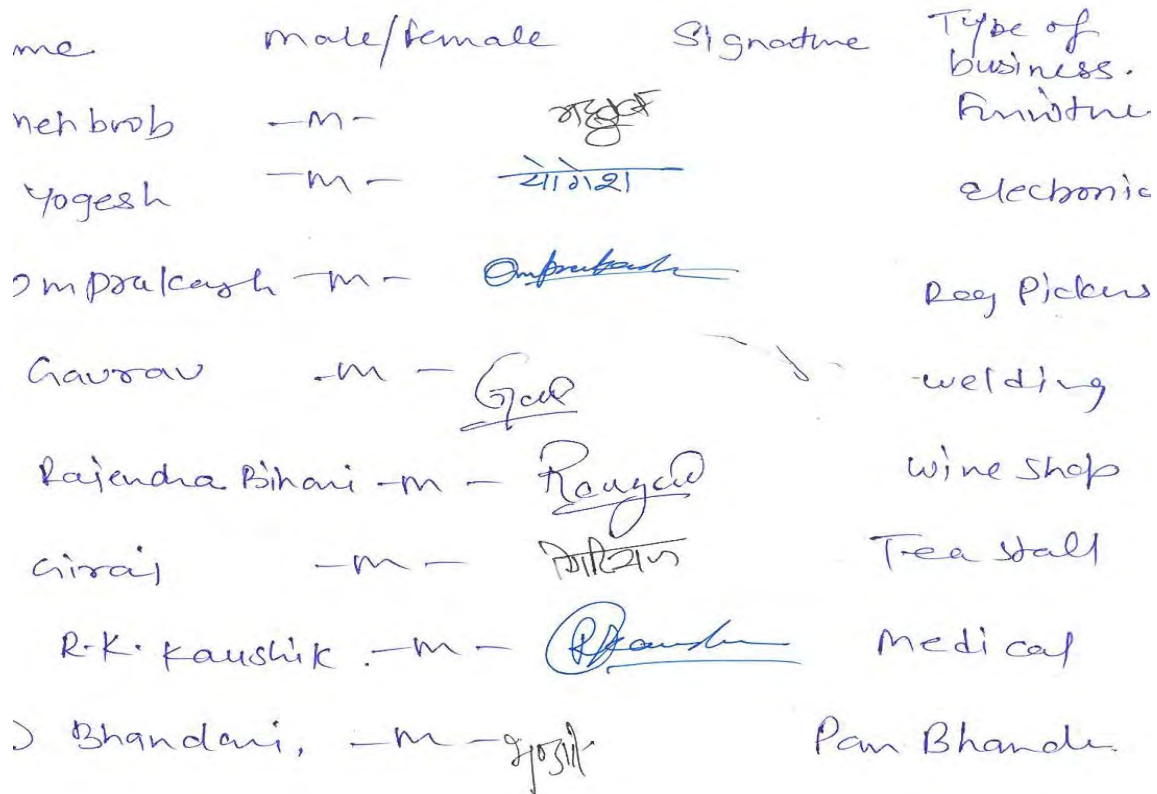 me male/female Signature Type of
business.
mehboob -M- महबूब Furniture
Yogesh -M- योगेश electronic
Omprakash -M- Omprakash Rag Pickers
Gaurav -M- welding
Rajendra Bihari -M- wine shop
Giraj -M- Tea stall
R.K. Kaushik. -M- Medical
Bhandari, -M- Pan Bhandar